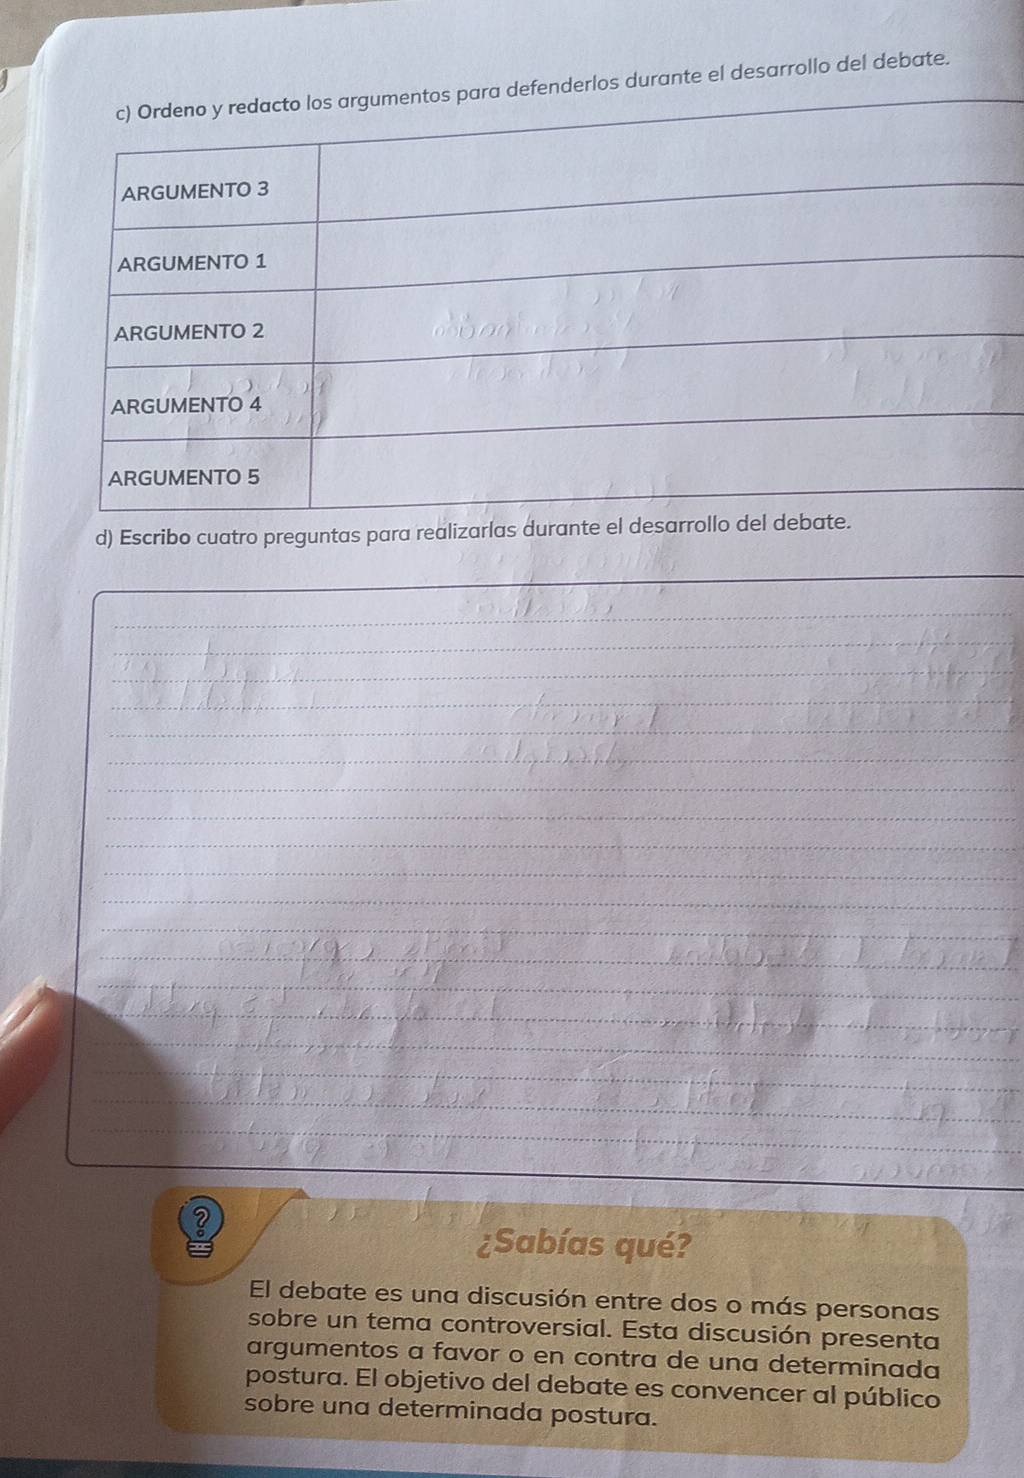 c) Ordeno y redacto los argumentos para defenderlos durante el desarrollo del debate.
ARGUMENTO 3
ARGUMENTO 1
ARGUMENTO 2
ARGUMENTO 4
ARGUMENTO 5
d) Escribo cuatro preguntas para realizarlas durante el desarrollo del debate.
¿Sabías qué?
El debate es una discusión entre dos o más personas
sobre un tema controversial. Esta discusión presenta
argumentos a favor o en contra de una determinada
postura. El objetivo del debate es convencer al público
sobre una determinada postura.